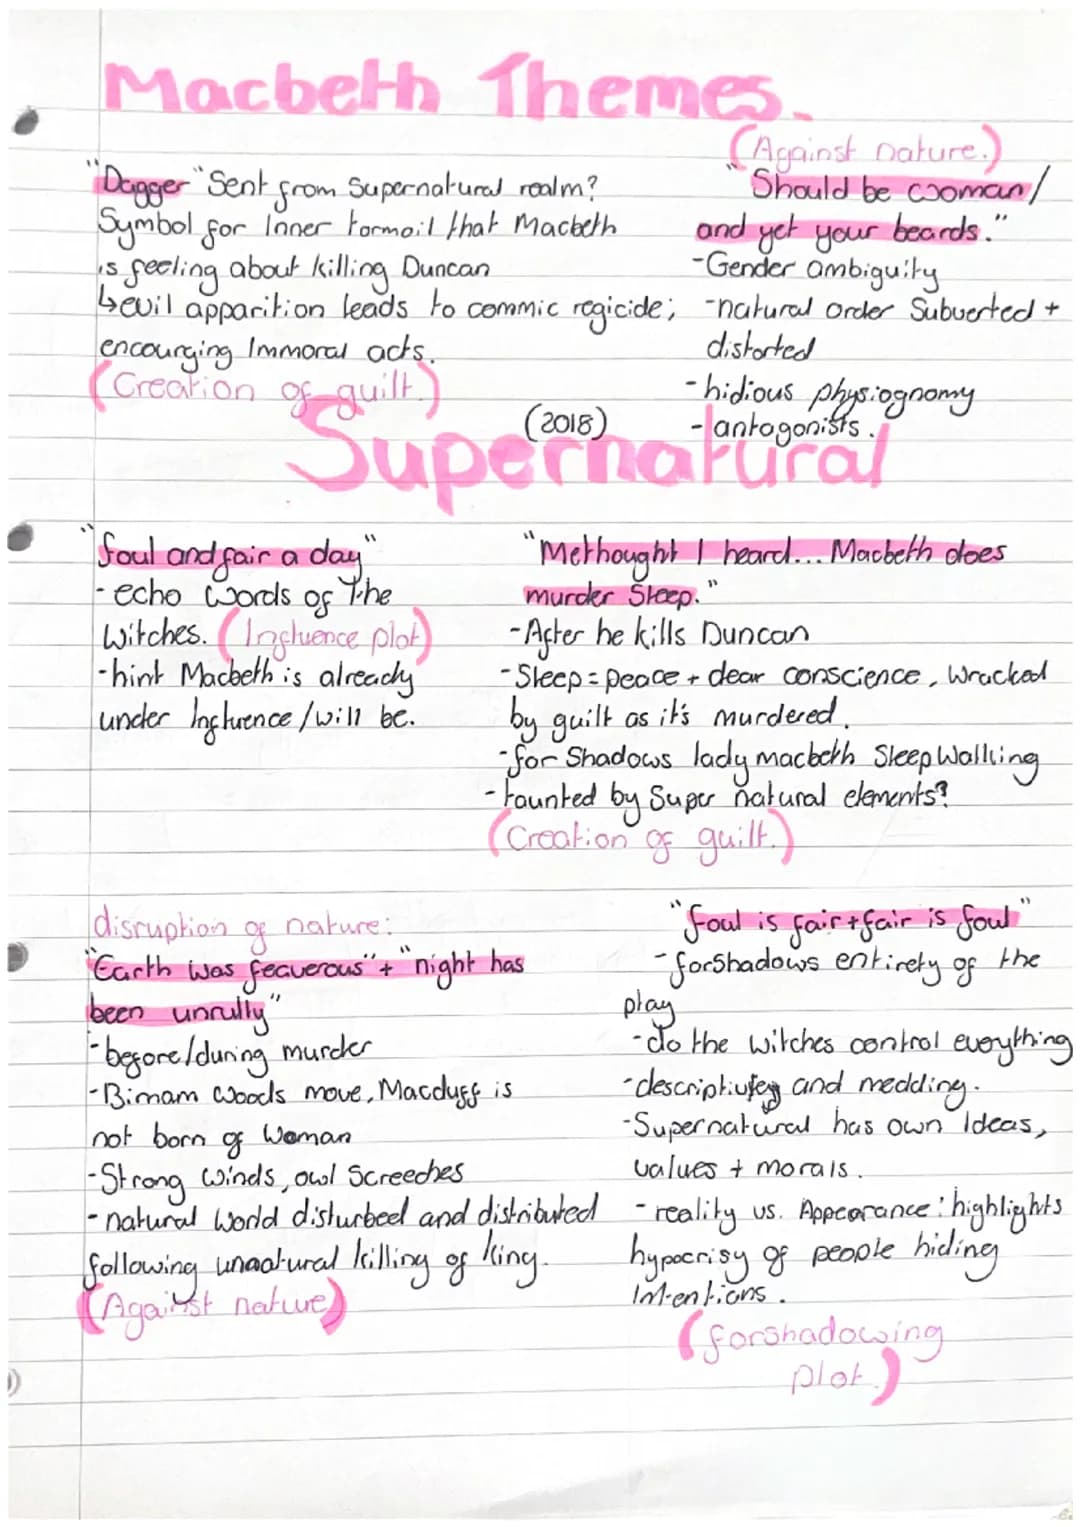 Macbeth Themes.
"Dagger" Sent from Supernatural realm?
Symbol for Inner tormoil that Macbeth
is feeling about killing Duncan
↳ evil apparition leads to commic regicide;
encourging Immoral acts.
(Creation of guilt.)
(Against nature.)
"Should be woman/
and yet your beards."
-Gender ambiguity
-natural order Subverted +
distorted
-hidious physiognomy
-antagonists.
(2018)
Supernatural
"foul and fair a day"
-echo words of The
Witches. (Influence plot)
-hint Macbeth is already
under Influence/will be.
"Methought I heard... Macbeth does
murder Sleep."
-After he kills Duncan
-Sleep = peace + clear conscience, Wracked
by guilt as it's murdered.
-for Shadows lady macbeth SleepWalking
-taunted by Super natural elements?
(Creation of guilt.)
disruption of nature:
"Earth was feaverous" + "night has
been unrully"
-before/during murder
-Birnam Woods move, Macduff is
not born of Woman
-Strong Winds, owl Screeches
-natural World disturbed and distributed
following unnatural killing of king.
(Against nature)
"foul is fair + fair is foul"
-forShadows entirety of the
play
-do the witches control everything
and medding.
-Supernatural has own Ideas,
values + morals.
-reality vs. Appearance: highlights
hypocrisy of people hiding
Intentions.
(forshadowing
plot.)